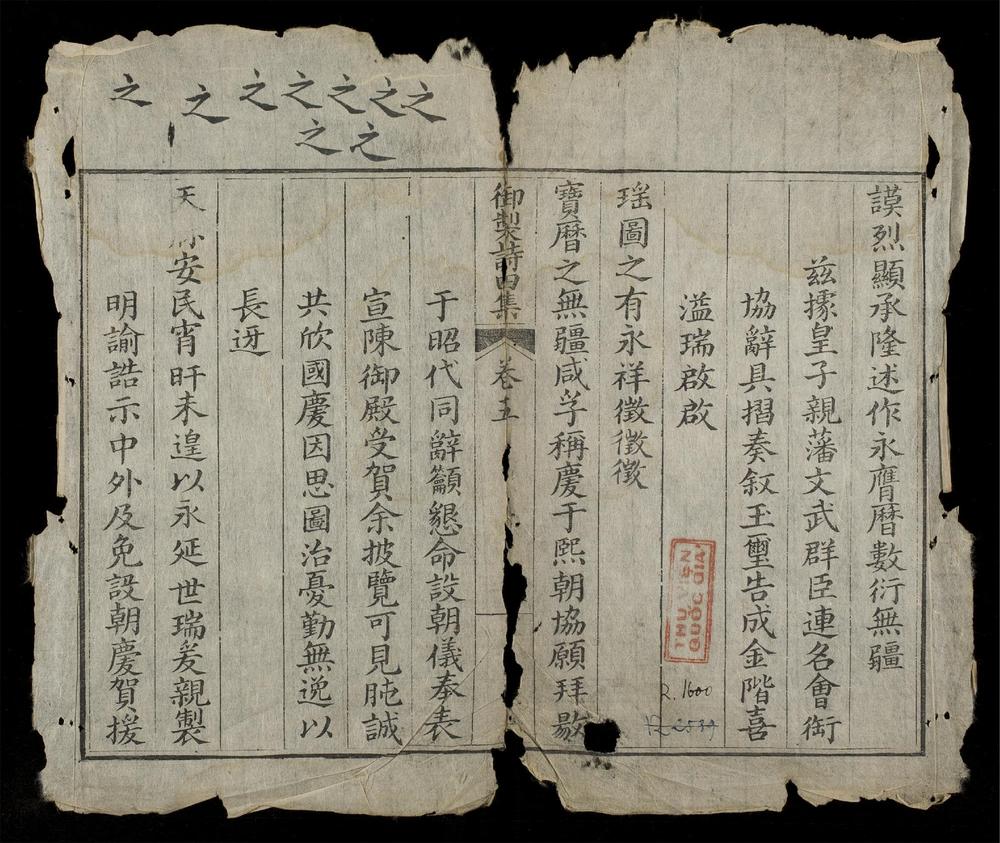 謨烈顯承隆述作永膺曆數衍無疆
兹據皇子親藩文武群臣連名會銜
協辭具摺奏敘玉璽告成金階喜
溢瑞啟啟
瑶圖之有永祥徵徵徵
寶曆之無疆咸孚稱慶于熙朝協願拜颺
御製詩四集 卷五
于昭代同辭籲懇命設朝儀奉表
宣陳御殿受賀余披覽可見肫誠
共欣國慶因思圖治憂勤無逸以
長迓
天 安民宵旰未遑以永延世瑞爰親製
明諭誥示中外及免設朝慶賀援
之之之之之之之
之之
THƯ VIỆN
QUỐC GIA
R. 1600